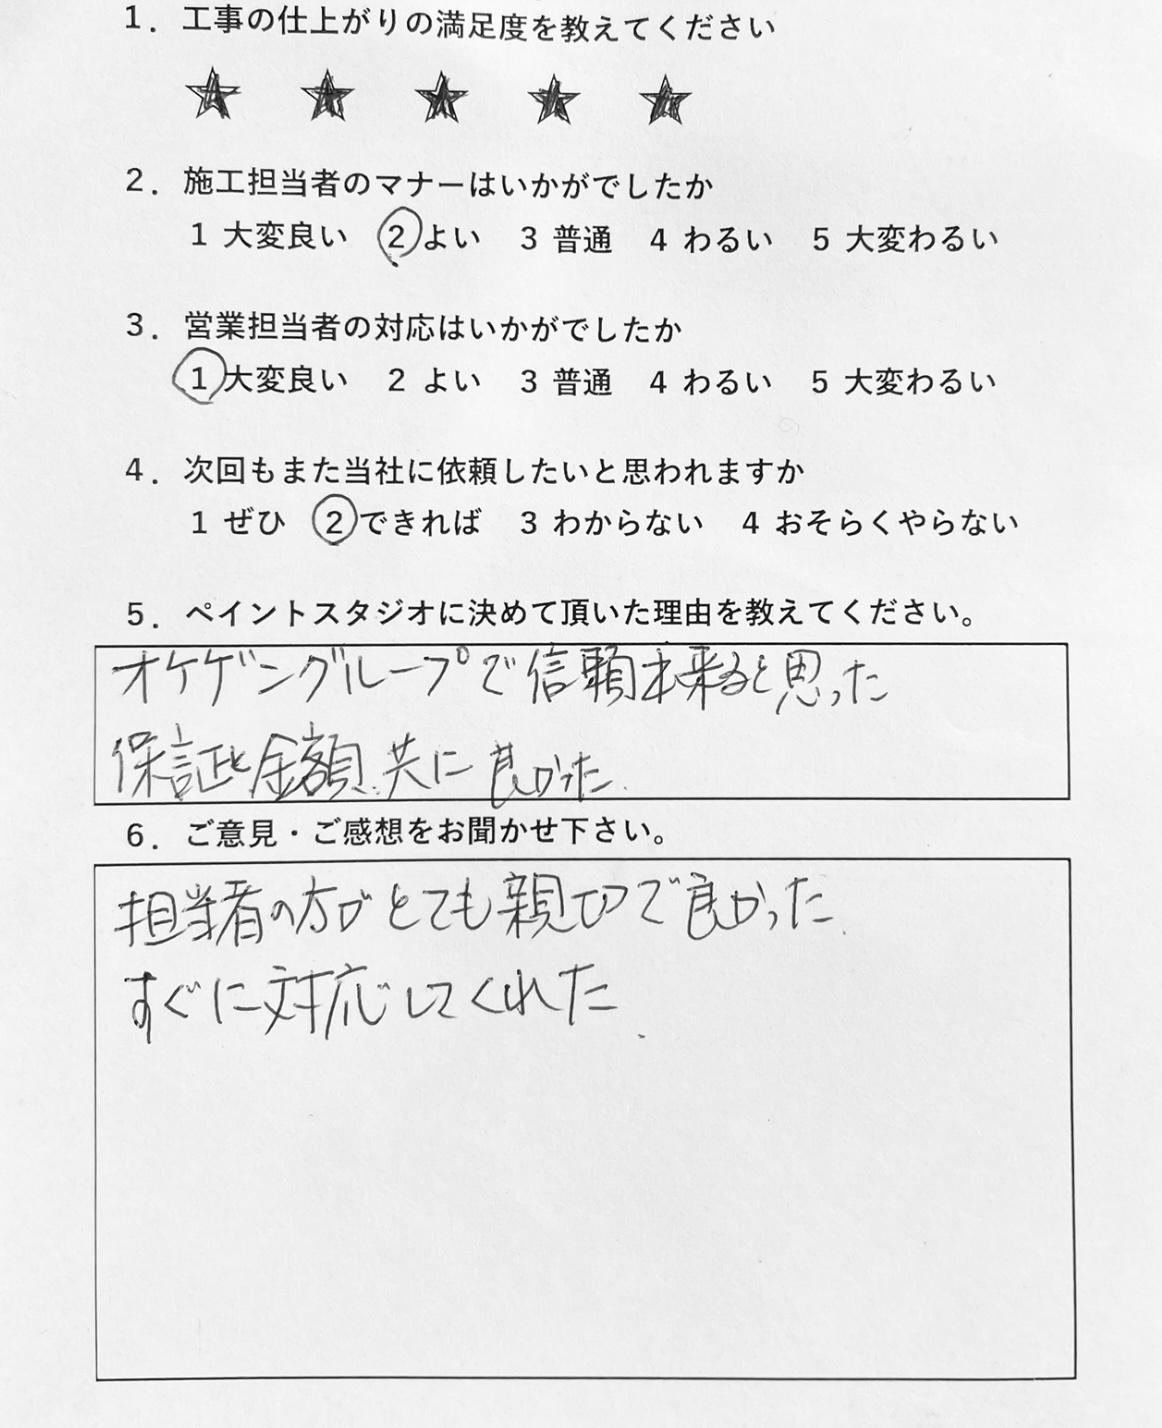 1．工事の仕上がりの満足度を教えてください
★ ★ ★ ★ ★
2．施工担当者のマナーはいかがでしたか
1 大変良い 2 よい 3 普通 4 わるい 5 大変わるい
3．営業担当者の対応はいかがでしたか
1 大変良い 2 よい 3 普通 4 わるい 5 大変わるい
4．次回もまた当社に依頼したいと思われますか
1 ぜひ 2 できれば 3 わからない 4 おそらくやらない
5．ペイントスタジオに決めて頂いた理由を教えてください。
オケゲングループで信頼出来ると思った
保証と金額 共に良かった.
6．ご意見・ご感想をお聞かせ下さい。
担当者の方がとても親切で良かった.
すぐに対応してくれた.